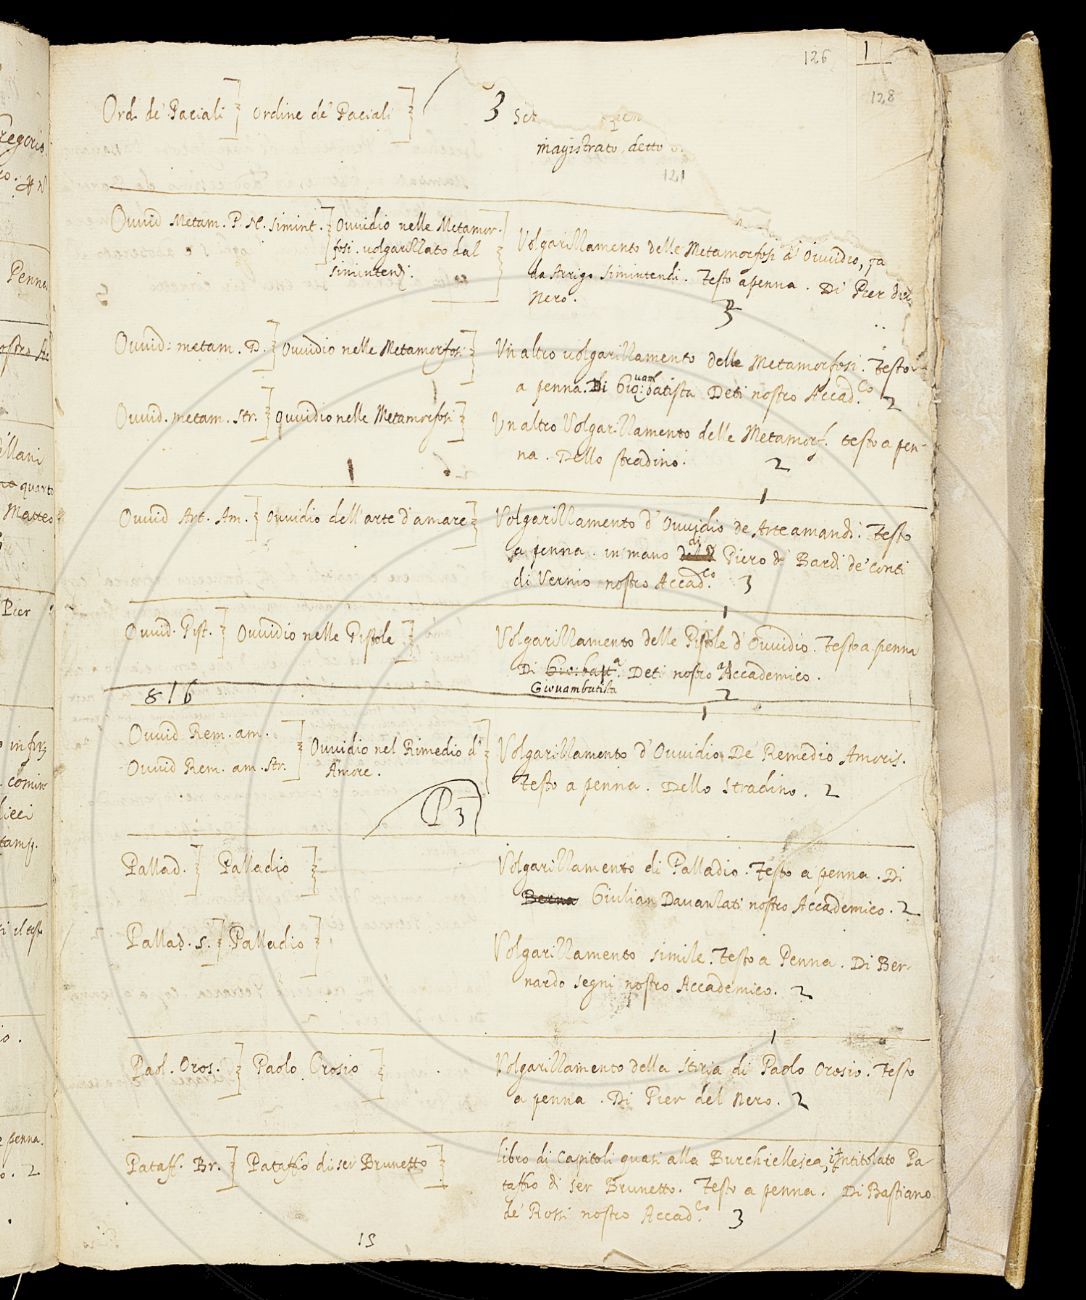 126 1
128
Ord. de' Paciali] ordine de' Paciali] 3
magistrato detto
121
Ovvid Metam. P. N. Simint.] Ovvidio nelle Metamor-
fosi volgarillato dal
Simintendi.
Volgarillamento delle Metamorfosi d'Ovvidio,
da Arrigo Simintendi. Testo a penna. Di Pier del
Nero. 3
Ovvid: metam. D.] Ovvidio nelle Metamorfosi] Un altro volgarillamento delle Metamorfosi. Testo
a penna. Di Giovam batista Deti nostro Accad.co 2
Ovvid. metam. Str.] Ovvidio nelle Metamorfosi] Un altro Volgarillamento delle Metamorf. testo a pen-
na. Dello stradino. 2
1
Ovvid Art. Am.] Ovvidio dell'arte d'amare] Volgarillamento d'Ovvidio de Arte amandi. Testo
a penna. in mano di Piero de Bardi de' conti
di Vernio nostro Accad.co 3
1
Ovvid. Pist.] Ovvidio nelle Pistole] Volgarillamento delle Pistole d'Ovvidio. Testo a penna
Di Gio: batt.a Deti nostro Accademico.
Giovambatista 2
816
1
Ovvid Rem. am.
Ovvid Rem. am. Str.] Ovvidio nel Rimedio d'
Amore.
Volgarillamento d'Ovvidio De Remedio Amoris.
Testo a penna. Dello Stradino. 2
P 3
Pallad.] Palladio] Volgarillamento di Palladio. Testo a penna. Di
Giulian Davanlati nostro Accademico. 2
Pallad. S.] Palladio] Volgarillamento simile. Testo a Penna. Di Ber-
nardo Segni nostro Accademico. 2
1
Paol. Oros.] Paolo Orosio] Volgarillamento della Storia di Paolo Orosio. Testo
a penna. Di Pier del Nero. 2
Pataff. Br.] Pataffio di ser Brunetto] libro di Capitoli quasi alla Burchiellesca, intitolato Pa-
taffio di ser Brunetto. Testo a penna. Di Bastiano
de' Rossi nostro Accad.co 3
15